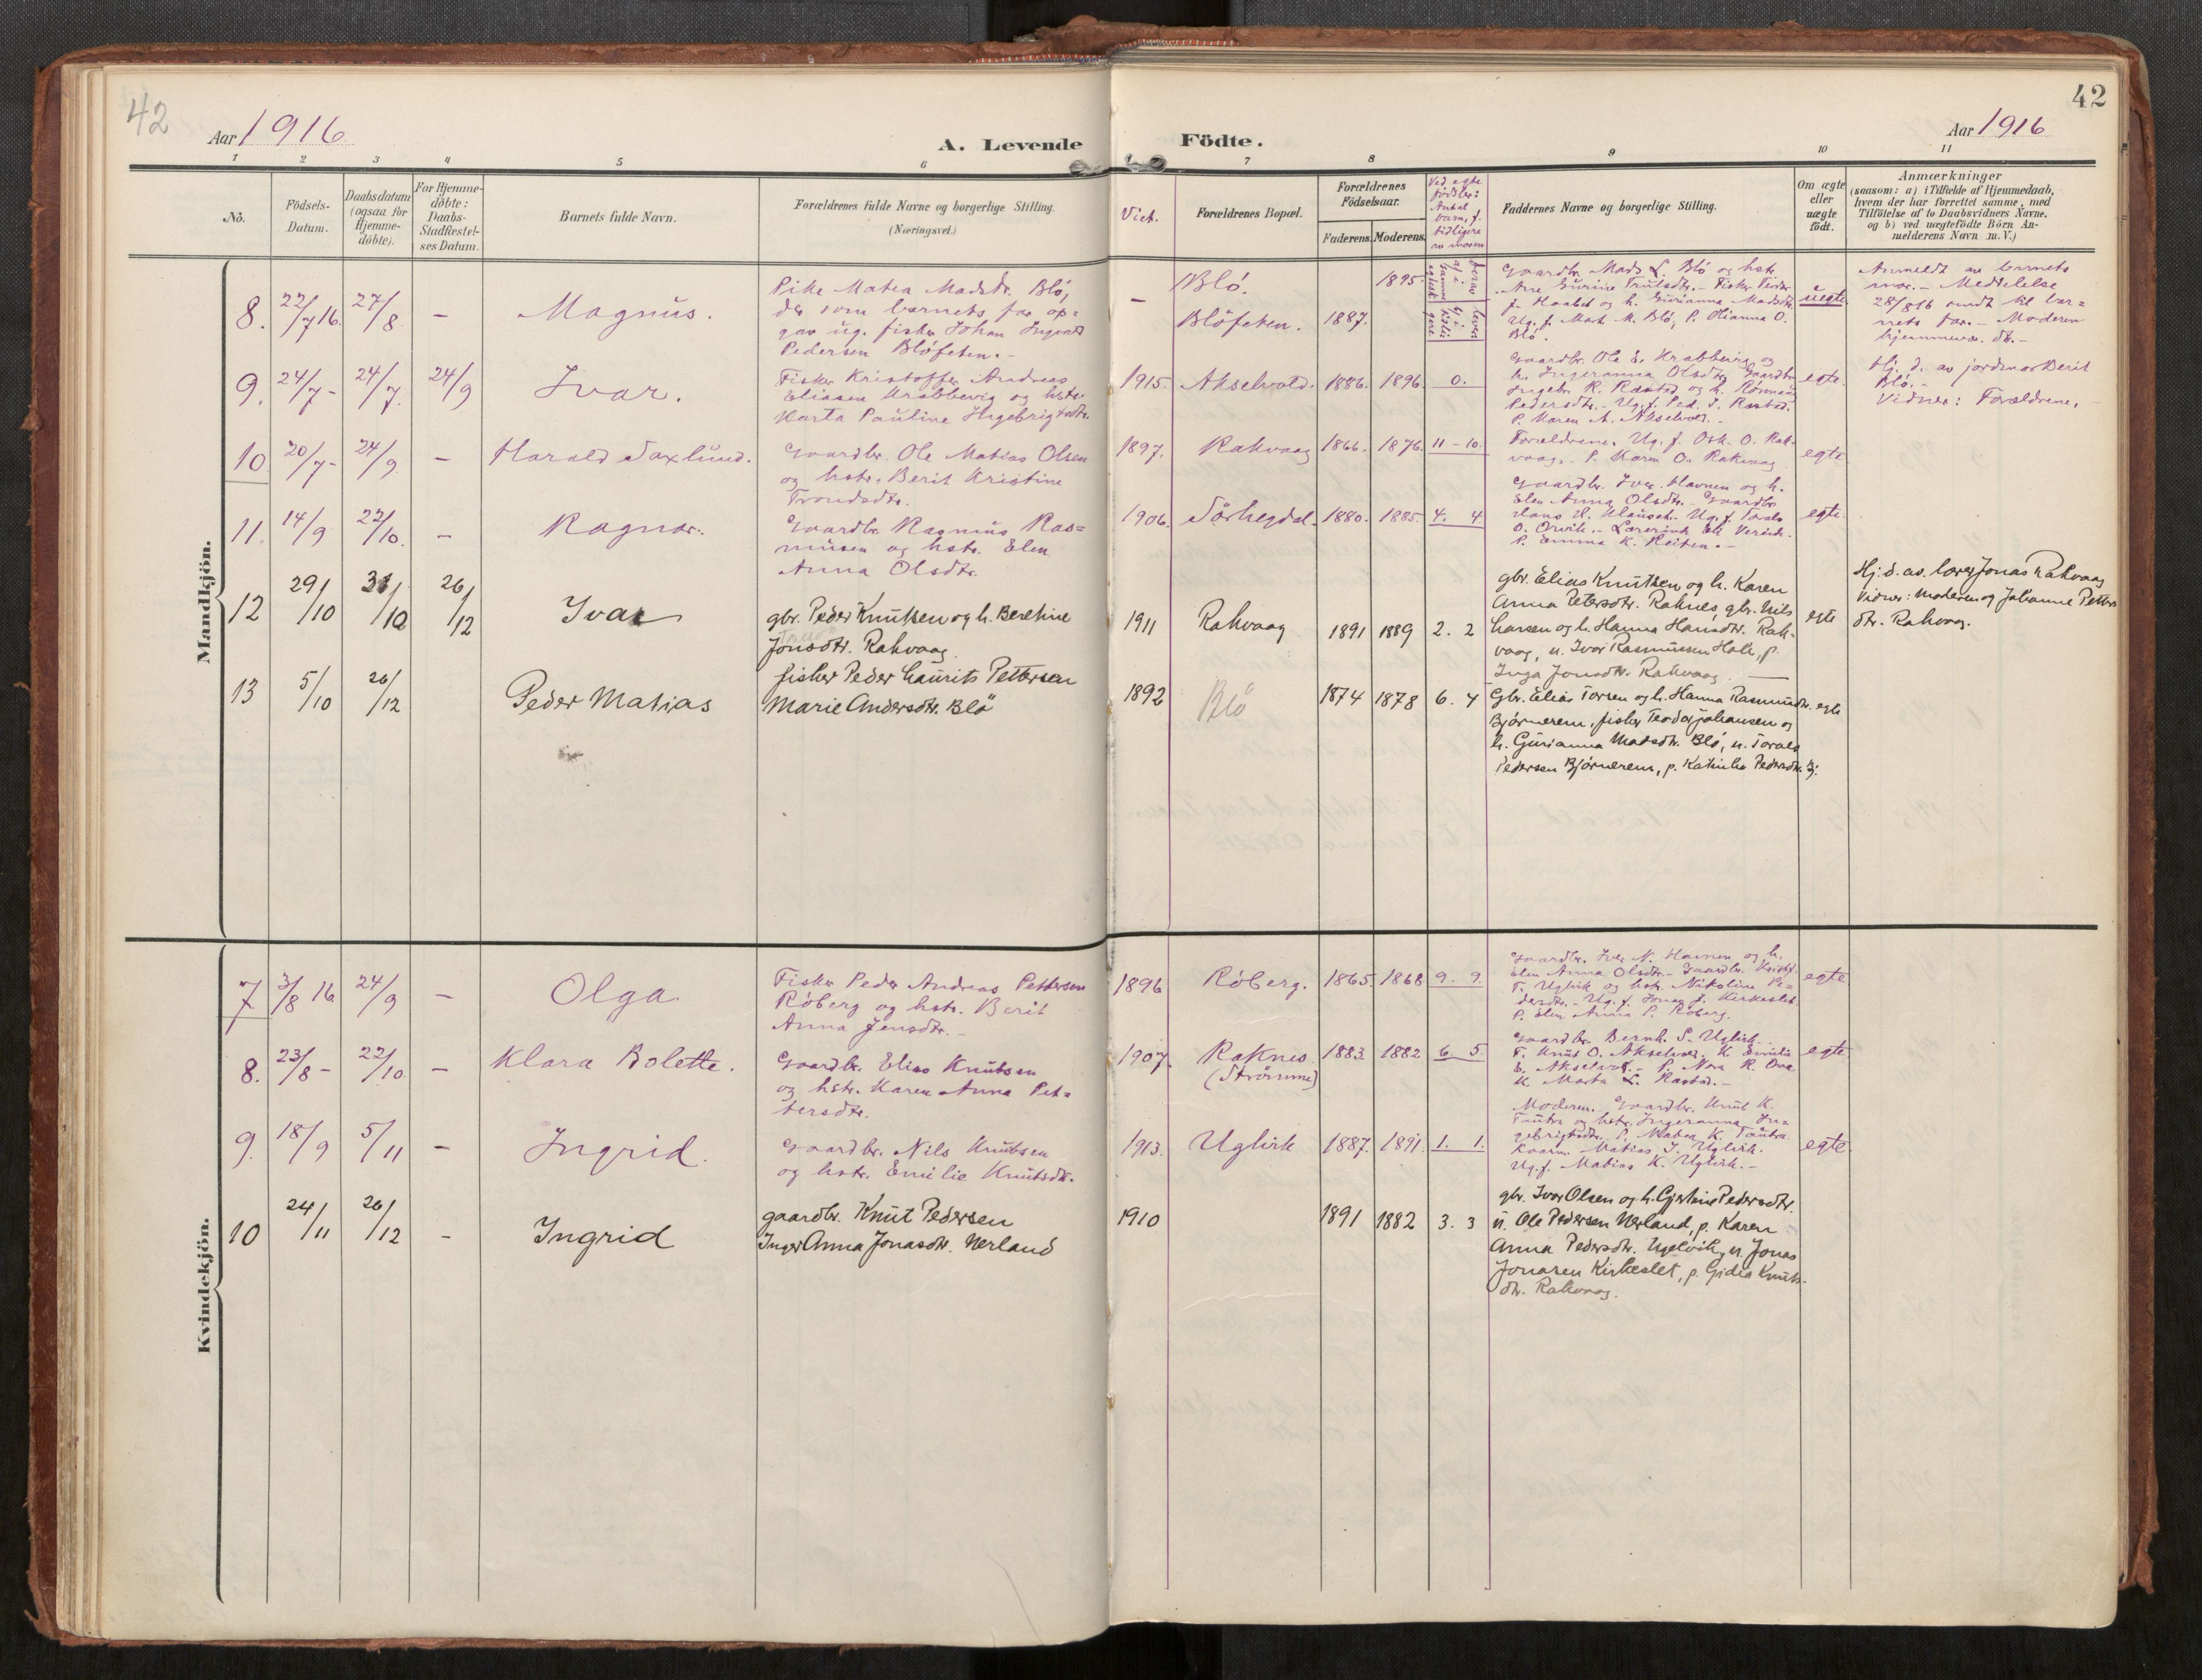 42
Aar 1916
A. Levende
Födte.
Aar 1916
42
1 2 3 4 5 6
7 8 9 10 11
No.
Födsels-
Datum.
Daabsdatum
(ogsaa for
Hjemme-
döbte).
For Hjemme-
döbte:
Daabs-
Stadfæstel-
ses Datum.
Barnets fulde Navn.
Forældrenes fulde Navne og borgerlige Stilling.
(Næringsvei.)
Viet.
Forældrenes Bopæl.
Forældrenes
Födselsaar.
Faderens. Moderens.
Ved egte
fødsler:
Antal
barn, f.
tidligere
av moren
Faddernes Navne og borgerlige Stilling.
Om ægte
eller
uægte
födt.
Anmærkninger
(saasom: a) i Tilfælde af Hjemmedaab,
hvem der har forrettet samme, med
Tilföielse af to Daabsvidners Navne,
og b) ved uægtefödte Börn An-
melderens Navn m.V.)
Mandkjön.
8. 22/7 16. 27/8 - Magnus.
Pike Matea Madsdr. Blö,
der som barnets far op=
gav ug. fisker Johan Ingvald
Pedersen Blöfeten.-
- Blö. 1895.
Blöfeten. 1887.
Gaardbr. Mads L. Blö og hstr.
Ane Gurine Knutsdtr.- Fisker Peder
J. Haabet og h. Gurianna Madsdtr.
Ug. f. Mart. M. Blö, P. Olianna O.
Blö.
uegte
Anmeldt av barnets
mor. - Meddelelse
28/8 16 sendt til bar=
nets far. - Moderen
hjemmevær. dtr.-
9. 24/7- 24/7. 24/9 Ivar.
Fisker Kristoffer Andreas
Eliasen Krabbevig og hstr.
Marta Pauline Ingebrigtsdtr.
1915. Akselvold. 1886. 1896. 0.
Gaardbr. Ole E. Krabbevig og
h. Ingeranna Olsdtr. Gaardbr.
Ingebr. R. Rastad og h.
Pedersdtr. - Ug. f. Ped. I. Rastad.
P. Maren A. Akselvold.-
egte.
Hj. d. av jordmor Berit
Blö.-
Vidner: Forældrene.
10. 20/7- 24/9 - Harald Saxlund.
Gaardbr. Ole Matias Olsen
og hstr. Berit Kristine
Trondsdtr.
1897. Rakvaag 1866. 1876. 11-10.
Forældrene. Ug. f. Osk. O. Rak-
vaag. - P. Maren O. Rakvaag
egte
11. 14/9 22/10. - Ragnar.
Gaardbr. Rasmus Ras=
musen og hstr. Elen
Anna Olsdtr.
1906. Sörhegdal. 1880. 1885. 4. 4.
Gaardbr. Iver Havnen og h.
Elen Anna Olsdtr. Gaardbr.
Hans H. Klauset. Ug. f. Torals
O. Orvik.
P. Emma K. Reiten.-
egte
12 29/10 31/10 26/12 Ivar
gbr. Peder Knutsen og h. Berethine
Jonsdtr. Rakvaag.
1911 Rakvaag 1891 1889 2. 2
gbr. Elias Knutsen og h. Karen
Anna Petersdtr. Raknes, gbr. Nils
Larsen og h. Hanna Hansdtr. Rak-
vaag, u. Ivar Rasmussen Hole, p.
Inga Jonsdtr. Rakvaag.
egte
Hj. d. av. lærer Jonas Rakvaag
Vidner: Moderen og Johanne Petters
dtr. Rakvaag.
13 5/10 26/12 Peder Matias
fisker Peder Laurits Pettersen
Marie Andersdtr. Blö
1892 Blö 1874 1878 6. 4
Gbr. Elias Torsen og h. Hanna Rasmusdtr.
Björnerem, fisker Teodor Johansen og
h. Gurianna Madsdtr. Blö, u. Torals
Pedersen Björnerem, p. Katinka Pedersdtr. Bj.
egte
Kvindekjön.
7. 3/8 16 24/9 - Olga.
Fisker Peder Andreas Pettersen
Röberg og hstr. Berit
Anna Jensdtr.-
1896 Röberg. 1865. 1868 9. 9.
Gaardbr. Iver N. Havnen og h.
Elen Anna Olsdtr.- Gaardbr. Kristf.
T. Uglvik og hstr. Nikoline Pe=
dersdtr.- Ug. f. Jonas J. Kirkeslet
P. Elen Anna P. Röberg.
egte
8. 23/8- 22/10. - Klara Bolette.
Gaardbr. Elias Knutsen
og hstr. Karen Anna Pet=
tersdtr.
1907. Raknes 1883. 1882 6. 5.
(Strömme)
Gaardbr. Bernh. S. Uglvik.
F. Knut O. Akselvold. K. Emilie
E. Akselvold.- P. Nora R.
K. Marta L. Rastad.-
egte
9. 18/9 5/11 - Ingrid.
Gaardbr. Nils Knutsen
og hstr. Emilie Knutsdtr.
1913. Uglvik 1887. 1891. 1. 1.
Moderen. Gaardbr. Knut K.
Tautra og hstr. Ingeranna In=
gebrigtsdtr. P. Maren K. Tautra.
Kaarm. Matias I. Uglvik.
Ug. f. Matias K. Uglvik.-
egte.
10 24/11 26/12 - Ingrid
gaardbr. Knut Pedersen
Inger Anna Jonasdtr. Nerland
1910 1891 1882 3. 3
gbr. Ivar Olsen og h. Gjertine Pedersdtr.
u. Ole Pedersen Nerland, p. Karen
Anna Pedersdtr. Ugelvik, u. Jonas
Jonasen Kirkeslet, p. Gidia Knuts-
dtr. Rakvaag.